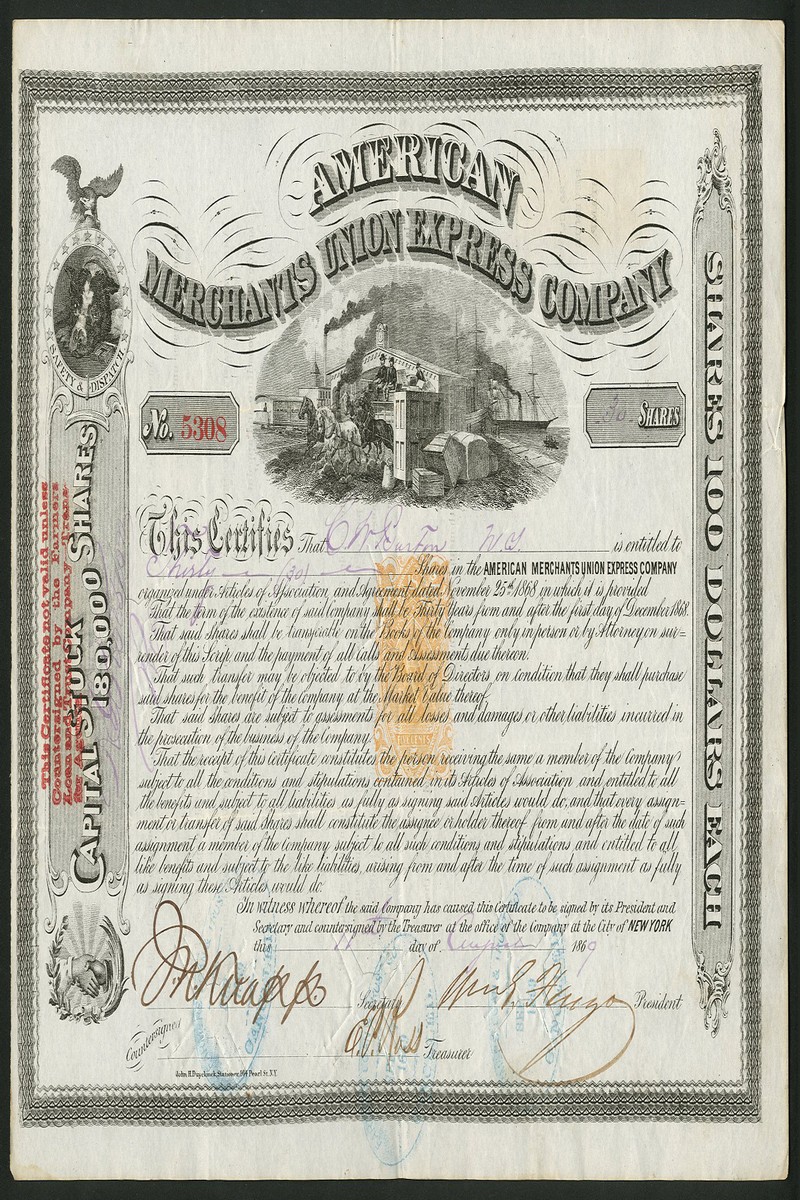 AMERICAN
MERCHANTS UNION EXPRESS COMPANY
SAFETY & DISPATCH
No. 5308
30 SHARES
CAPITAL STOCK 180,000 SHARES
SHARES 100 DOLLARS EACH
This Certificate not valid unless
Countersigned by the Farmers
Loan and Trust Company Trans-
fer Agents
This Certifies That C W Burton is entitled to
Thirty (30) Shares in the AMERICAN MERCHANTS UNION EXPRESS COMPANY
organized under Articles of Association, and Agreement dated November 25th 1868 in which it is provided
That the term of the existence of said Company shall be Thirty Years from and after the first day of December 1868.
That said Shares shall be transferable on the Books of the Company only in person or by Attorney on sur=
render of this Scrip, and the payment of all Calls and Assessments due thereon.
That such transfer may be objected to by the Board of Directors on condition that they shall purchase
said shares for the benefit of the Company at the Market Value thereof.
That said shares are subject to assessment for all losses and damages or other liabilities incurred in
the prosecution of the business of the Company.
That the receipt of this Certificate constitutes the person receiving the same a member of the Company
subject to all the conditions and stipulations contained in its Articles of Association and entitled to all
the benefits and subject to all liabilities as fully as signing said Articles would do, and that every assign=
ment or transfer of said Shares shall constitute the assignee or holder thereof from and after the date of such
assignment a member of the Company subject to all such conditions and stipulations and entitled to all
like benefits and subject to the like liabilities, arising from and after the time of such assignment as fully
as signing these Articles would do.
In witness whereof the said Company has caused this Certificate to be signed by its President and
Secretary and countersigned by the Treasurer at the office of the Company at the City of NEW YORK
this day of August 1869
J N Knapp Secretary Wm G Fargo President
Countersigned
Treasurer
John R. Duyckinck, Stationer, 164 Pearl St. N.Y.